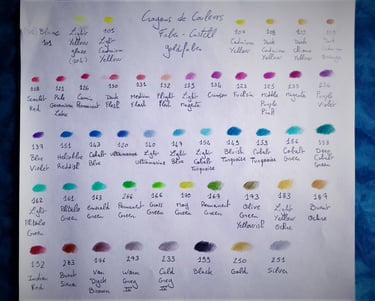 Crayons de Couleurs
Faber - Castell
goldfaber
101 Blanc
Light Yellow glaze (104)
105 Light Cadmium Yellow
Cadmium Yellow
108 Dark Cadmium Yellow
109 Dark Chrome Yellow
Cadmium Orange
Scarlet Red
121 Geranium Lake
126 Carmin
130 Dark Flesh
131 Medium Flesh
132 Light Flesh
Light Magenta
134 Crimson
123 Fuchsia
125 Middle Purple Pink
Magenta
136 Purple Violet
137 Blue Violet
151 Helioblue Reddish
143 Cobalt Blue
120 Ultramarine
140 Light Ultramarine
147 Light Blue
154 Light Cobalt Turquoise
149 Bluish Turquoise
153 Cobalt Turquoise
156 Cobalt Green
158 Deep Cobalt Green
162 Light Phtalo Green
161 Phtalo Green
163 Emerald Green
266 Permanent Green
166 Grass Green
170 May Green
167 Permanent Green
173 Olive Green Yellowish
183 Light Yellow Ochre
187 Burnt Ochre
192 Indian Red
283 Burnt Siena
176 Van Dyck Brown
273 Warm Grey IV
233 Cold Grey IV
199 Black
250 Gold
251 Silver